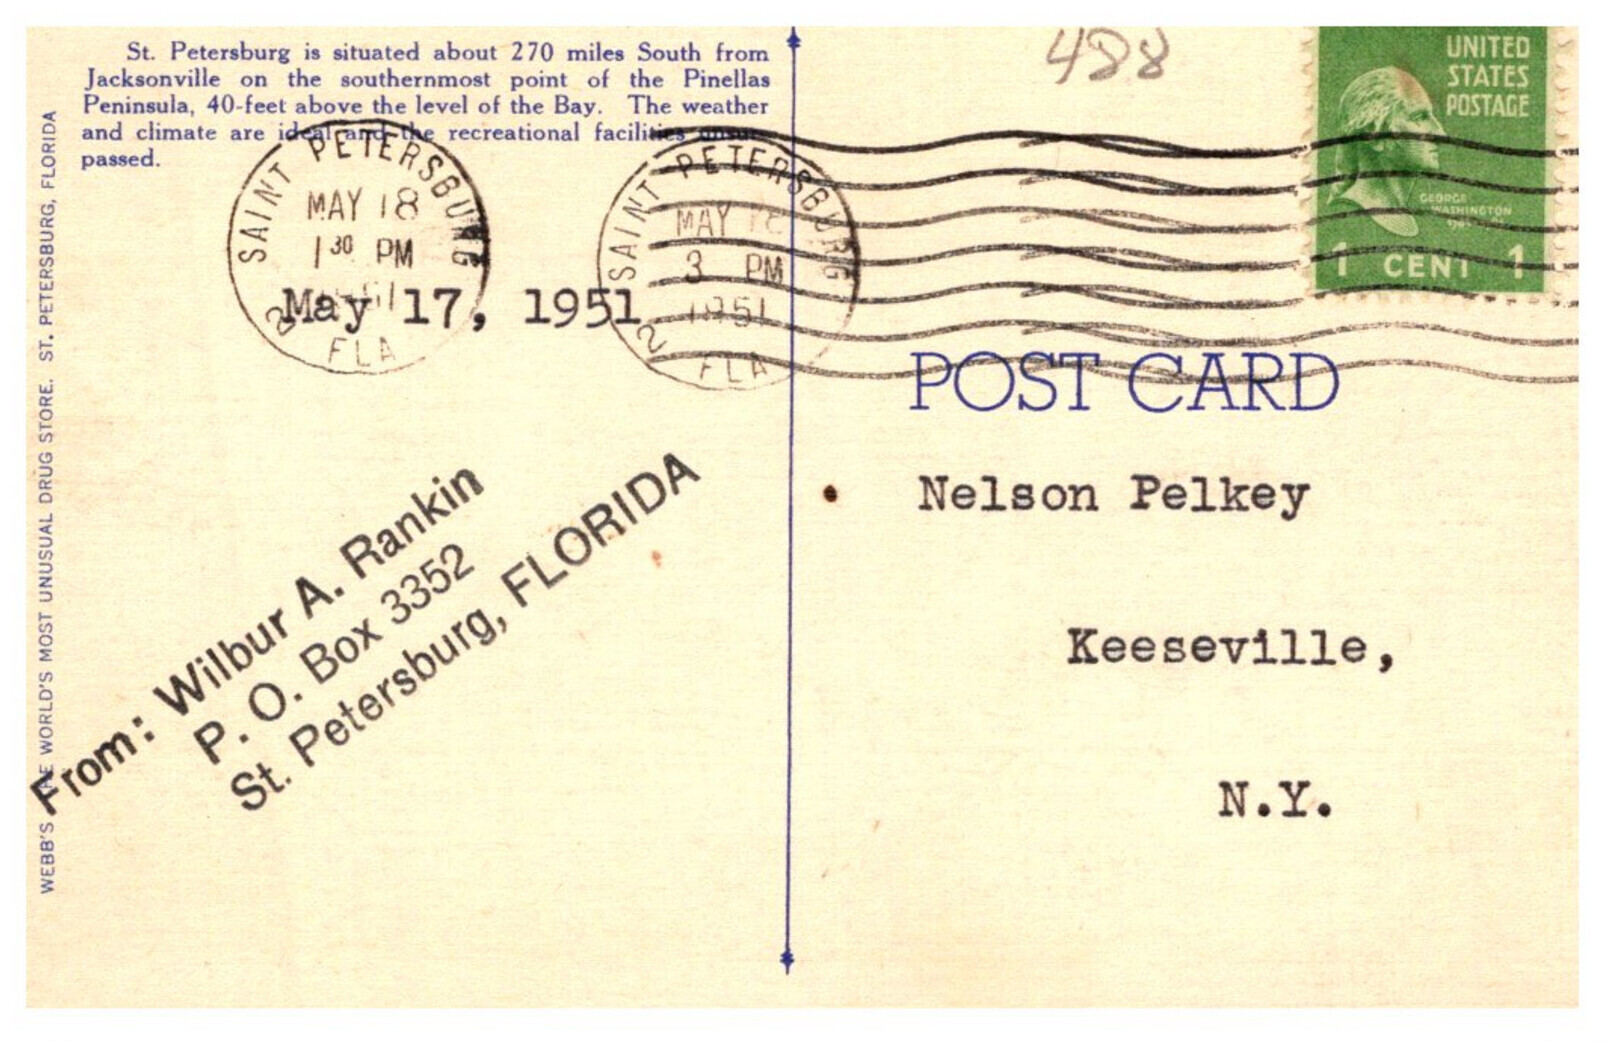 St. Petersburg is situated about 270 miles South from
Jacksonville on the southernmost point of the Pinellas
Peninsula, 40-feet above the level of the Bay. The weather
and climate are ideal and the recreational facilities unsur-
passed.
WEBB'S THE WORLD'S MOST UNUSUAL DRUG STORE. ST. PETERSBURG, FLORIDA
SAINT PETERSBURG
MAY 18
1 30 PM
1951
2
FLA
SAINT PETERSBURG
MAY 18
3 PM
1951
2
FLA
May 17, 1951
From: Wilbur A. Rankin
P. O. Box 3352
St. Petersburg, FLORIDA
488
UNITED
STATES
POSTAGE
GEORGE
WASHINGTON
1 CENT 1
POST CARD
Nelson Pelkey
Keeseville,
N.Y.